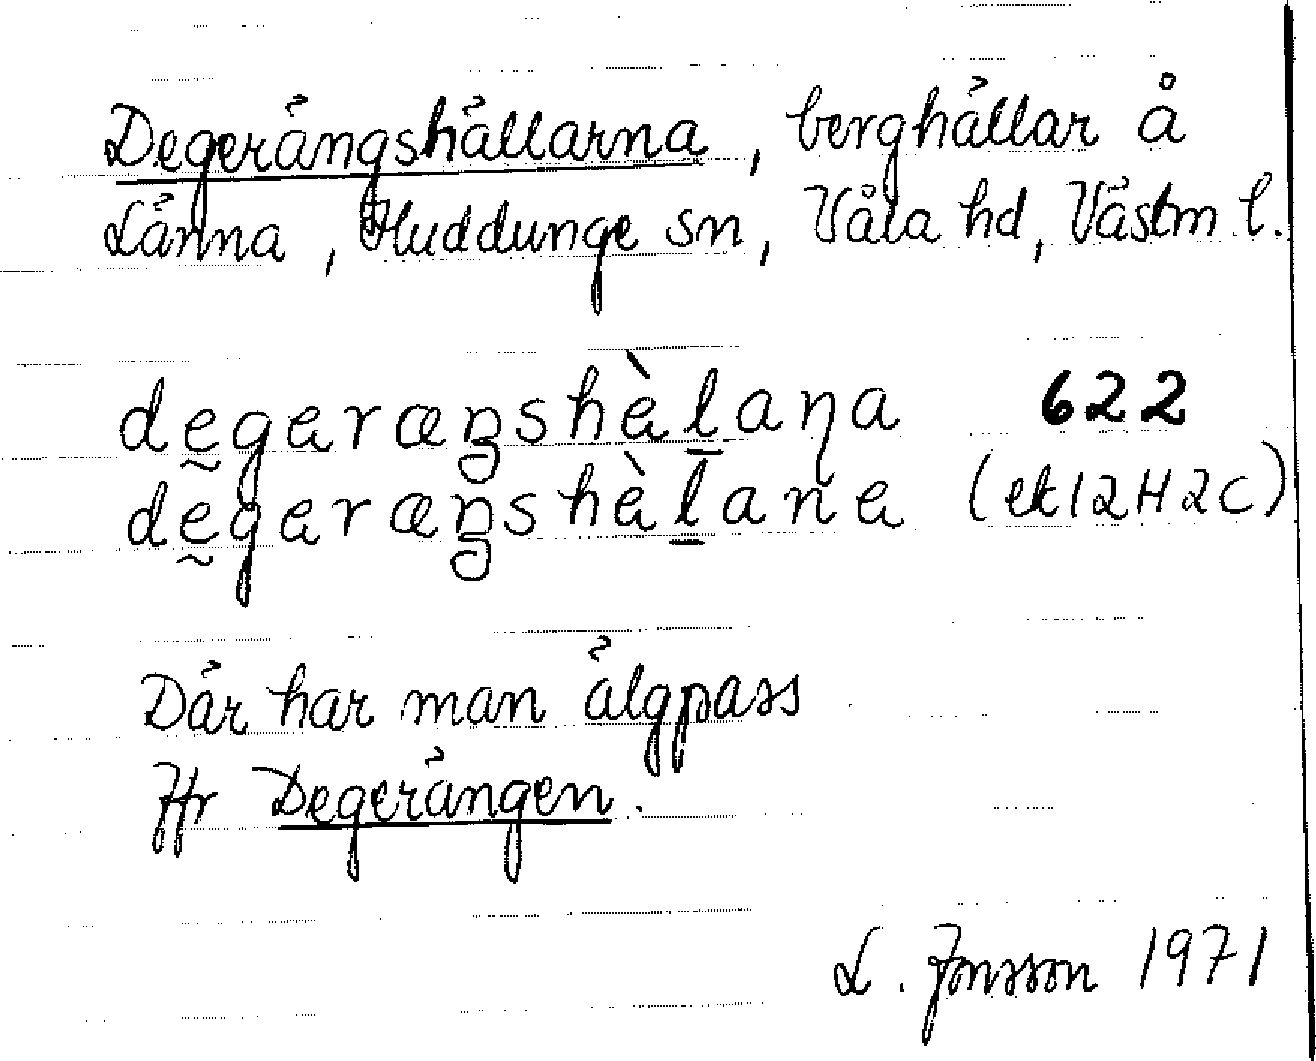 Degerängshällarna, berghällar å
Länna, Huddunge sn, Våla hd, Västm l.
dęgerœŋshὲlaɳa 622
dęgerœŋshὲlane (ek12H2C)
Där har man älgpass
Jfr Degerängen.
L. Jonsson 1971